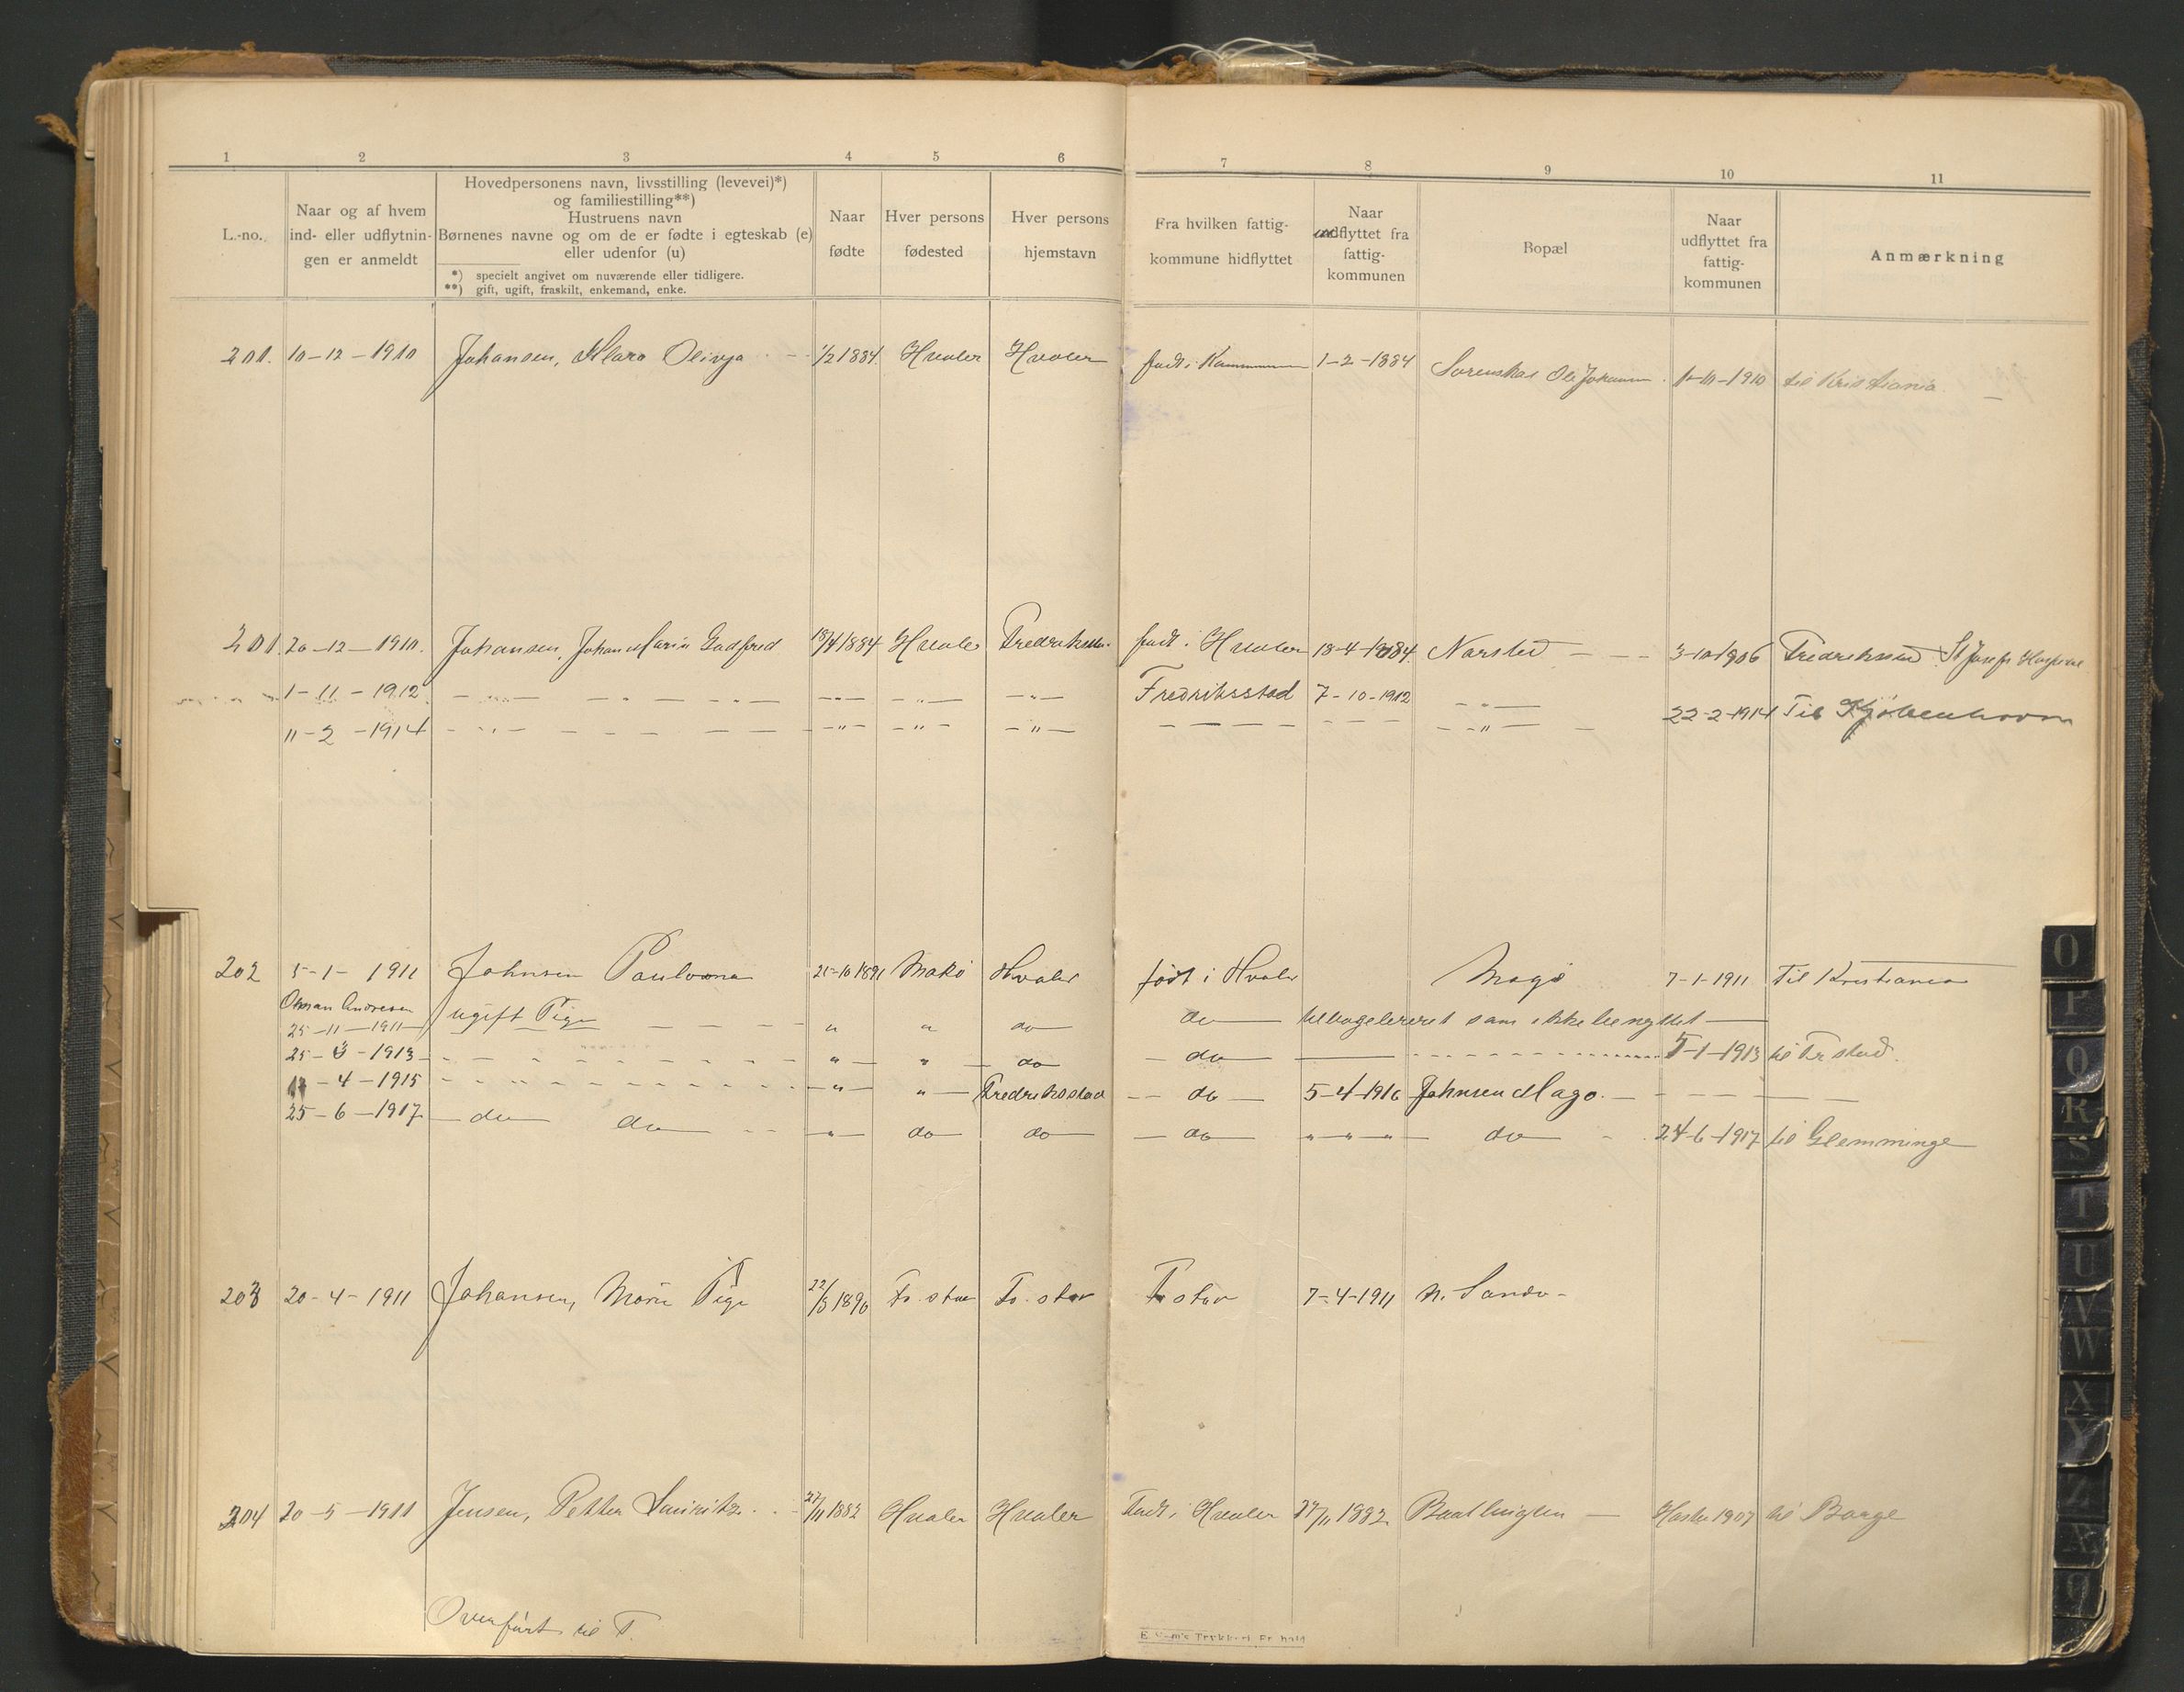 1 2 3 4 5 6 7 8 9 10 11
L.-no.
Naar og af hvem
ind- eller udflytnin-
gen er anmeldt
Hovedpersonens navn, livsstilling (levevei)*)
og familiestilling**)
Hustruens navn
Børnenes navne og om de er fødte i egteskab (e)
eller udenfor (u)
*) specielt angivet om nuværende eller tidligere.
**) gift, ugift, fraskilt, enkemand, enke.
Naar
fødte
Hver persons
fødested
Hver persons
hjemstavn
Fra hvilken fattig-
kommune hidflyttet
Naar
indflyttet fra
fattig-
kommunen
Bopæl
Naar
udflyttet fra
fattig-
kommunen
Anmærkning
201. 10-12-1910 Johansen, Klara Olivya 1/2 1884. Hvaler Hvaler født i Kommunen 1-2-1884 Ole Johansen 1910 til Kristiania
201. 20-12-1910. Johansen, Johan Marin Godfred 18/4 1884 Hvaler født i Hvaler 18-4-1884. Narsted 3-10-1906 St Josefs
1-11-1912 - " - - " - - " - - " - Fredriksstad 7-10-1912 - " -
11-2-1914 - " - - " - - " - - " - - " - 22-2-1914 Til Kjøbenhavn
202 5-1-1911 Johnsen Paulona 21-10 1891 Makø Hvaler født i Hvaler Magø 7-1-1911 Til Kristiania
Andresen
25-11-1911 ugift Pige " " do do som ikke
25-6-1913 - " - " " do do 5-1-1913 til Fr stad.
4-1915 - " - " " Fredriksstad do 5-4-1916 Johnsen Mago.
25-6-1917 do do " do do do " " " do 24-6-1917 til Glemminge
203 20-4-1911 Johansen, Marie Pige 22/3 1890 Fr. stad Fr. stad Fr stad 7-4-1911 N. Sandø
204 20-5-1911 Jensen, Petter 27/11 1882 Hvaler Hvaler Født i Hvaler 27/11 1882 1907 til Borge
Overført til T.
O
P
Q
R
S
T
U
V
W
X
Y
Z
Æ
Ø